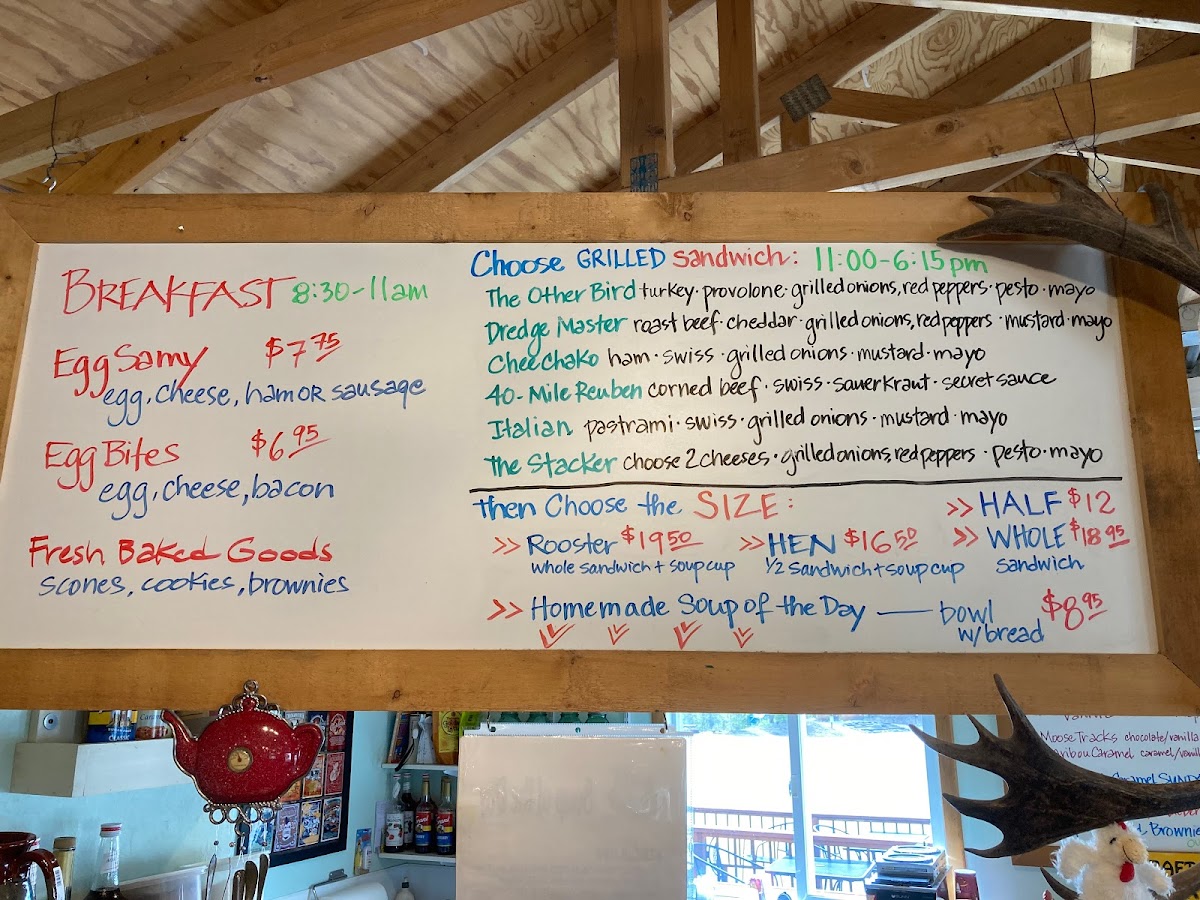 BREAKFAST 8:30-11am
Egg Samy $7.75
egg, cheese, ham OR sausage
Egg Bites $6.95
egg, cheese, bacon
Fresh Baked Goods
scones, cookies, brownies
Choose GRILLED sandwich: 11:00-6:15pm
The Other Bird turkey · provolone · grilled onions, red peppers · pesto · mayo
Dredge Master roast beef · cheddar · grilled onions, red peppers · mustard · mayo
CheeChaKo ham · swiss · grilled onions · mustard · mayo
40-Mile Reuben corned beef · swiss · sauerkraut · secret sauce
Italian pastrami · swiss · grilled onions · mustard · mayo
The Stacker choose 2 cheeses · grilled onions, red peppers · pesto · mayo
then Choose the SIZE:
>> HALF $12
>> Rooster $19.50 >> HEN $16.50 >> WHOLE $18.95
whole sandwich + soup cup 1/2 sandwich + soup cup sandwich
>> Homemade Soup of the Day — bowl $8.95
w/bread
Moose Tracks chocolate/vanilla
Caribou Caramel caramel/vanilla
Caramel
Brownie